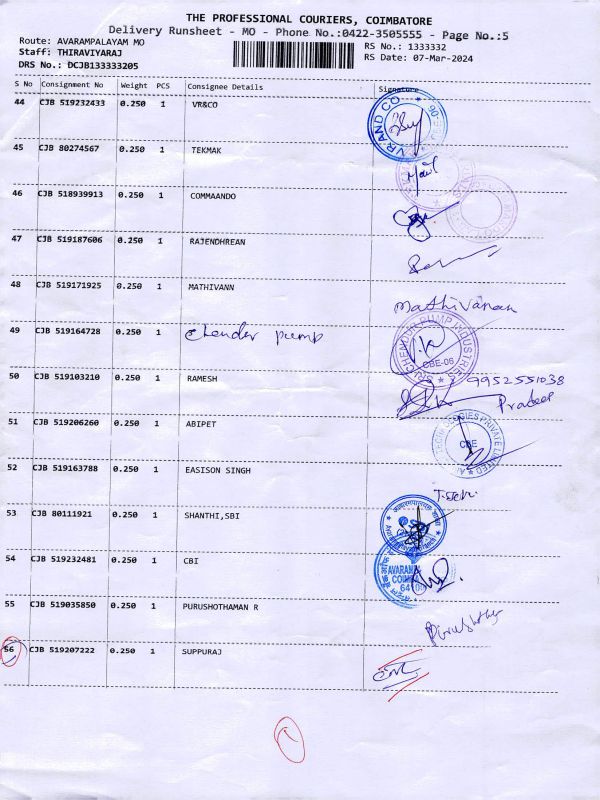 THE PROFESSIONAL COURIERS, COIMBATORE
Delivery Runsheet - MO - Phone No.:0422-3505555 - Page No.:5
Route: AVARAMPALAYAM MO
RS No.: 1333332
Staff: THIRAVIYARAJ
RS Date: 07-Mar-2024
DRS No.: DCJB133333205
S No Consignment No Weight PCS Consignee Details Signature
44 CJB 519232433 0.250 1 VR&CO
VR AND CO
45 CJB 80274567 0.250 1 TEKMAK
46 CJB 518939913 0.250 1 COMMAANDO
47 CJB 519187606 0.250 1 RAJENDHREAN
48 CJB 519171925 0.250 1 MATHIVANN
Mathivanan
49 CJB 519164728 0.250 1 Chendur pump
CHENDUR PUMP INDUSTRIES
CBE-06
50 CJB 519103210 0.250 1 RAMESH
9952551038
Pradeep
51 CJB 519206260 0.250 1 ABIPET
PRIVATE LIMITED
CBE
52 CJB 519163788 0.250 1 EASISON SINGH
53 CJB 80111921 0.250 1 SHANTHI,SBI
54 CJB 519232481 0.250 1 CBI
55 CJB 519035850 0.250 1 PURUSHOTHAMAN R
56 CJB 519207222 0.250 1 SUPPURAJ